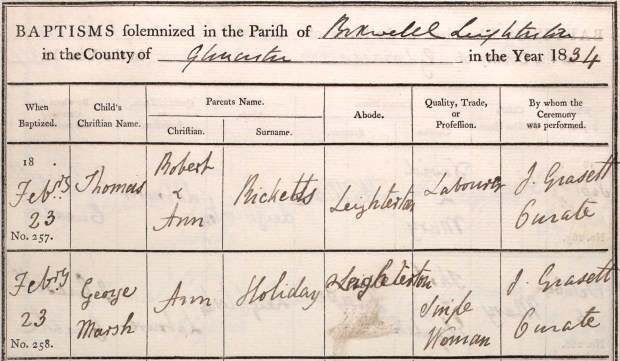 BAPTISMS solemnized in the Parish of Boxwell Leighterton
in the County of Gloucester in the Year 1834
When Baptized. Child's Christian Name. Parents Name. Abode. Quality, Trade, or Profession. By whom the Ceremony was performed.
Christian. Surname.
18
Febry 23
No. 257.
Thomas
Robert & Ann
Ricketts
Leighterton
Labourer
J. Grasett Curate
Febry 23
No. 258.
George Marsh
Ann
Holiday
Leighterton
Single Woman
J. Grasett Curate